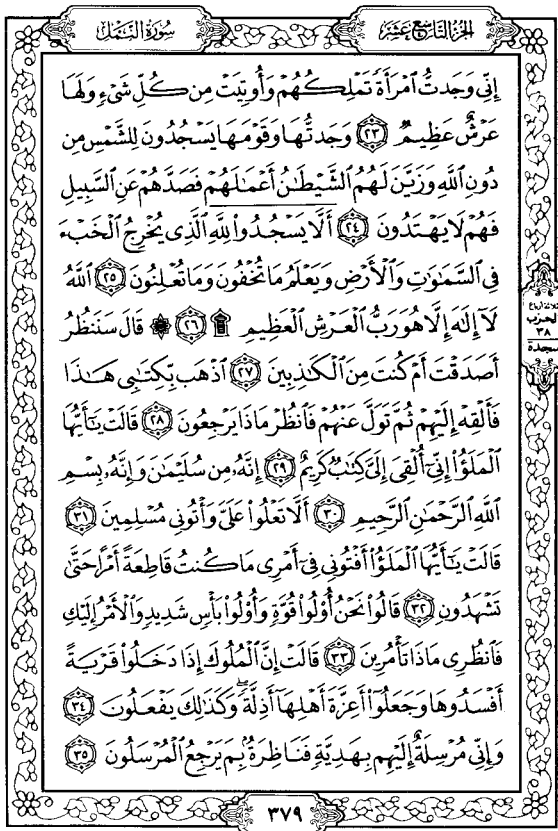 الجزء التاسع عشر
سورة النمل
إِنِّي وَجَدتُّ ٱمۡرَأَةٗ تَمۡلِكُهُمۡ وَأُوتِيَتۡ مِن كُلِّ شَيۡءٖ وَلَهَا
عَرۡشٌ عَظِيمٞ ٢٣ وَجَدتُّهَا وَقَوۡمَهَا يَسۡجُدُونَ لِلشَّمۡسِ مِن
دُونِ ٱللَّهِ وَزَيَّنَ لَهُمُ ٱلشَّيۡطَٰنُ أَعۡمَٰلَهُمۡ فَصَدَّهُمۡ عَنِ ٱلسَّبِيلِ
فَهُمۡ لَا يَهۡتَدُونَ ٢٤ أَلَّا يَسۡجُدُواْ لِلَّهِ ٱلَّذِي يُخۡرِجُ ٱلۡخَبۡءَ
فِي ٱلسَّمَٰوَٰتِ وَٱلۡأَرۡضِ وَيَعۡلَمُ مَا تُخۡفُونَ وَمَا تُعۡلِنُونَ ٢٥ ٱللَّهُ
لَآ إِلَٰهَ إِلَّا هُوَ رَبُّ ٱلۡعَرۡشِ ٱلۡعَظِيمِ ۩ ٢٦ ۞ قَالَ سَنَنظُرُ
أَصَدَقۡتَ أَمۡ كُنتَ مِنَ ٱلۡكَٰذِبِينَ ٢٧ ٱذۡهَب بِّكِتَٰبِي هَٰذَا
فَأَلۡقِهۡ إِلَيۡهِمۡ ثُمَّ تَوَلَّ عَنۡهُمۡ فَٱنظُرۡ مَاذَا يَرۡجِعُونَ ٢٨ قَالَتۡ يَٰٓأَيُّهَا
ٱلۡمَلَؤُاْ إِنِّيٓ أُلۡقِيَ إِلَيَّ كِتَٰبٞ كَرِيمٌ ٢٩ إِنَّهُۥ مِن سُلَيۡمَٰنَ وَإِنَّهُۥ بِسۡمِ
ٱللَّهِ ٱلرَّحۡمَٰنِ ٱلرَّحِيمِ ٣٠ أَلَّا تَعۡلُواْ عَلَيَّ وَأۡتُونِي مُسۡلِمِينَ ٣١
قَالَتۡ يَٰٓأَيُّهَا ٱلۡمَلَؤُاْ أَفۡتُونِي فِيٓ أَمۡرِي مَا كُنتُ قَاطِعَةً أَمۡرًا حَتَّىٰ
تَشۡهَدُونِ ٣٢ قَالُواْ نَحۡنُ أُوْلُواْ قُوَّةٖ وَأُوْلُواْ بَأۡسٖ شَدِيدٖ وَٱلۡأَمۡرُ إِلَيۡكِ
فَٱنظُرِي مَاذَا تَأۡمُرِينَ ٣٣ قَالَتۡ إِنَّ ٱلۡمُلُوكَ إِذَا دَخَلُواْ قَرۡيَةً
أَفۡسَدُوهَا وَجَعَلُوٓاْ أَعِزَّةَ أَهۡلِهَآ أَذِلَّةٗۚ وَكَذَٰلِكَ يَفۡعَلُونَ ٣٤
وَإِنِّي مُرۡسِلَةٌ إِلَيۡهِم بِهَدِيَّةٖ فَنَاظِرَةُۢ بِمَ يَرۡجِعُ ٱلۡمُرۡسَلُونَ ٣٥
ثلاثة أرباع
الحزب
٣٨
سجدة
٣٧٩